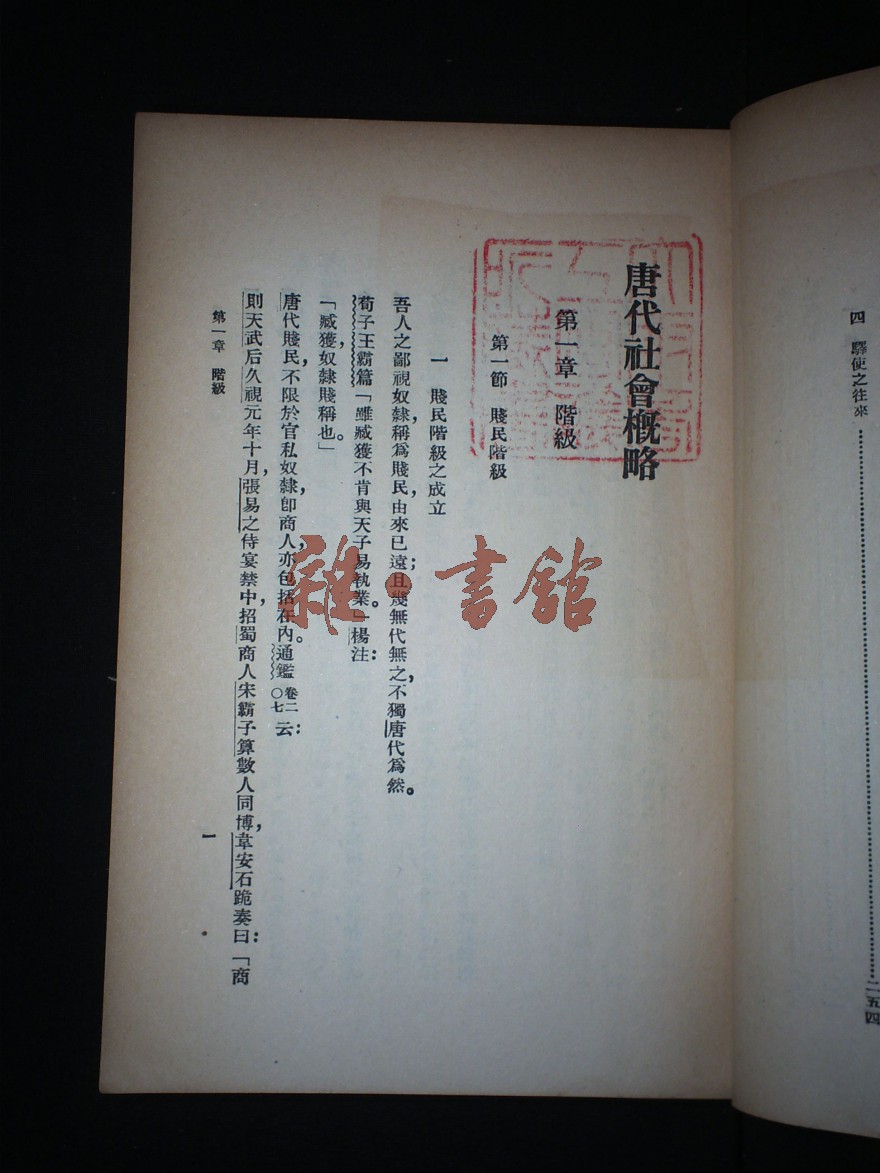 四　驛使之往來…………二五四
唐代社會概略
第一章　階級
第一節　賤民階級
一　賤民階級之成立
吾人之鄙視奴隸，稱爲賤民，由來已遠；且幾無代無之，不獨唐代爲然。
荀子王霸篇「雖臧獲不肯與天子易執業。」楊注：
「臧獲，奴隸賤稱也。」
唐代賤民，不限於官私奴隸，卽商人亦包括在內。通鑑卷二〇七云：
則天武后久視元年十月，張易之侍宴禁中，招蜀商人宋霸子算數人同博，韋安石跪奏曰：「商
第一章　階級
一
雜·書館